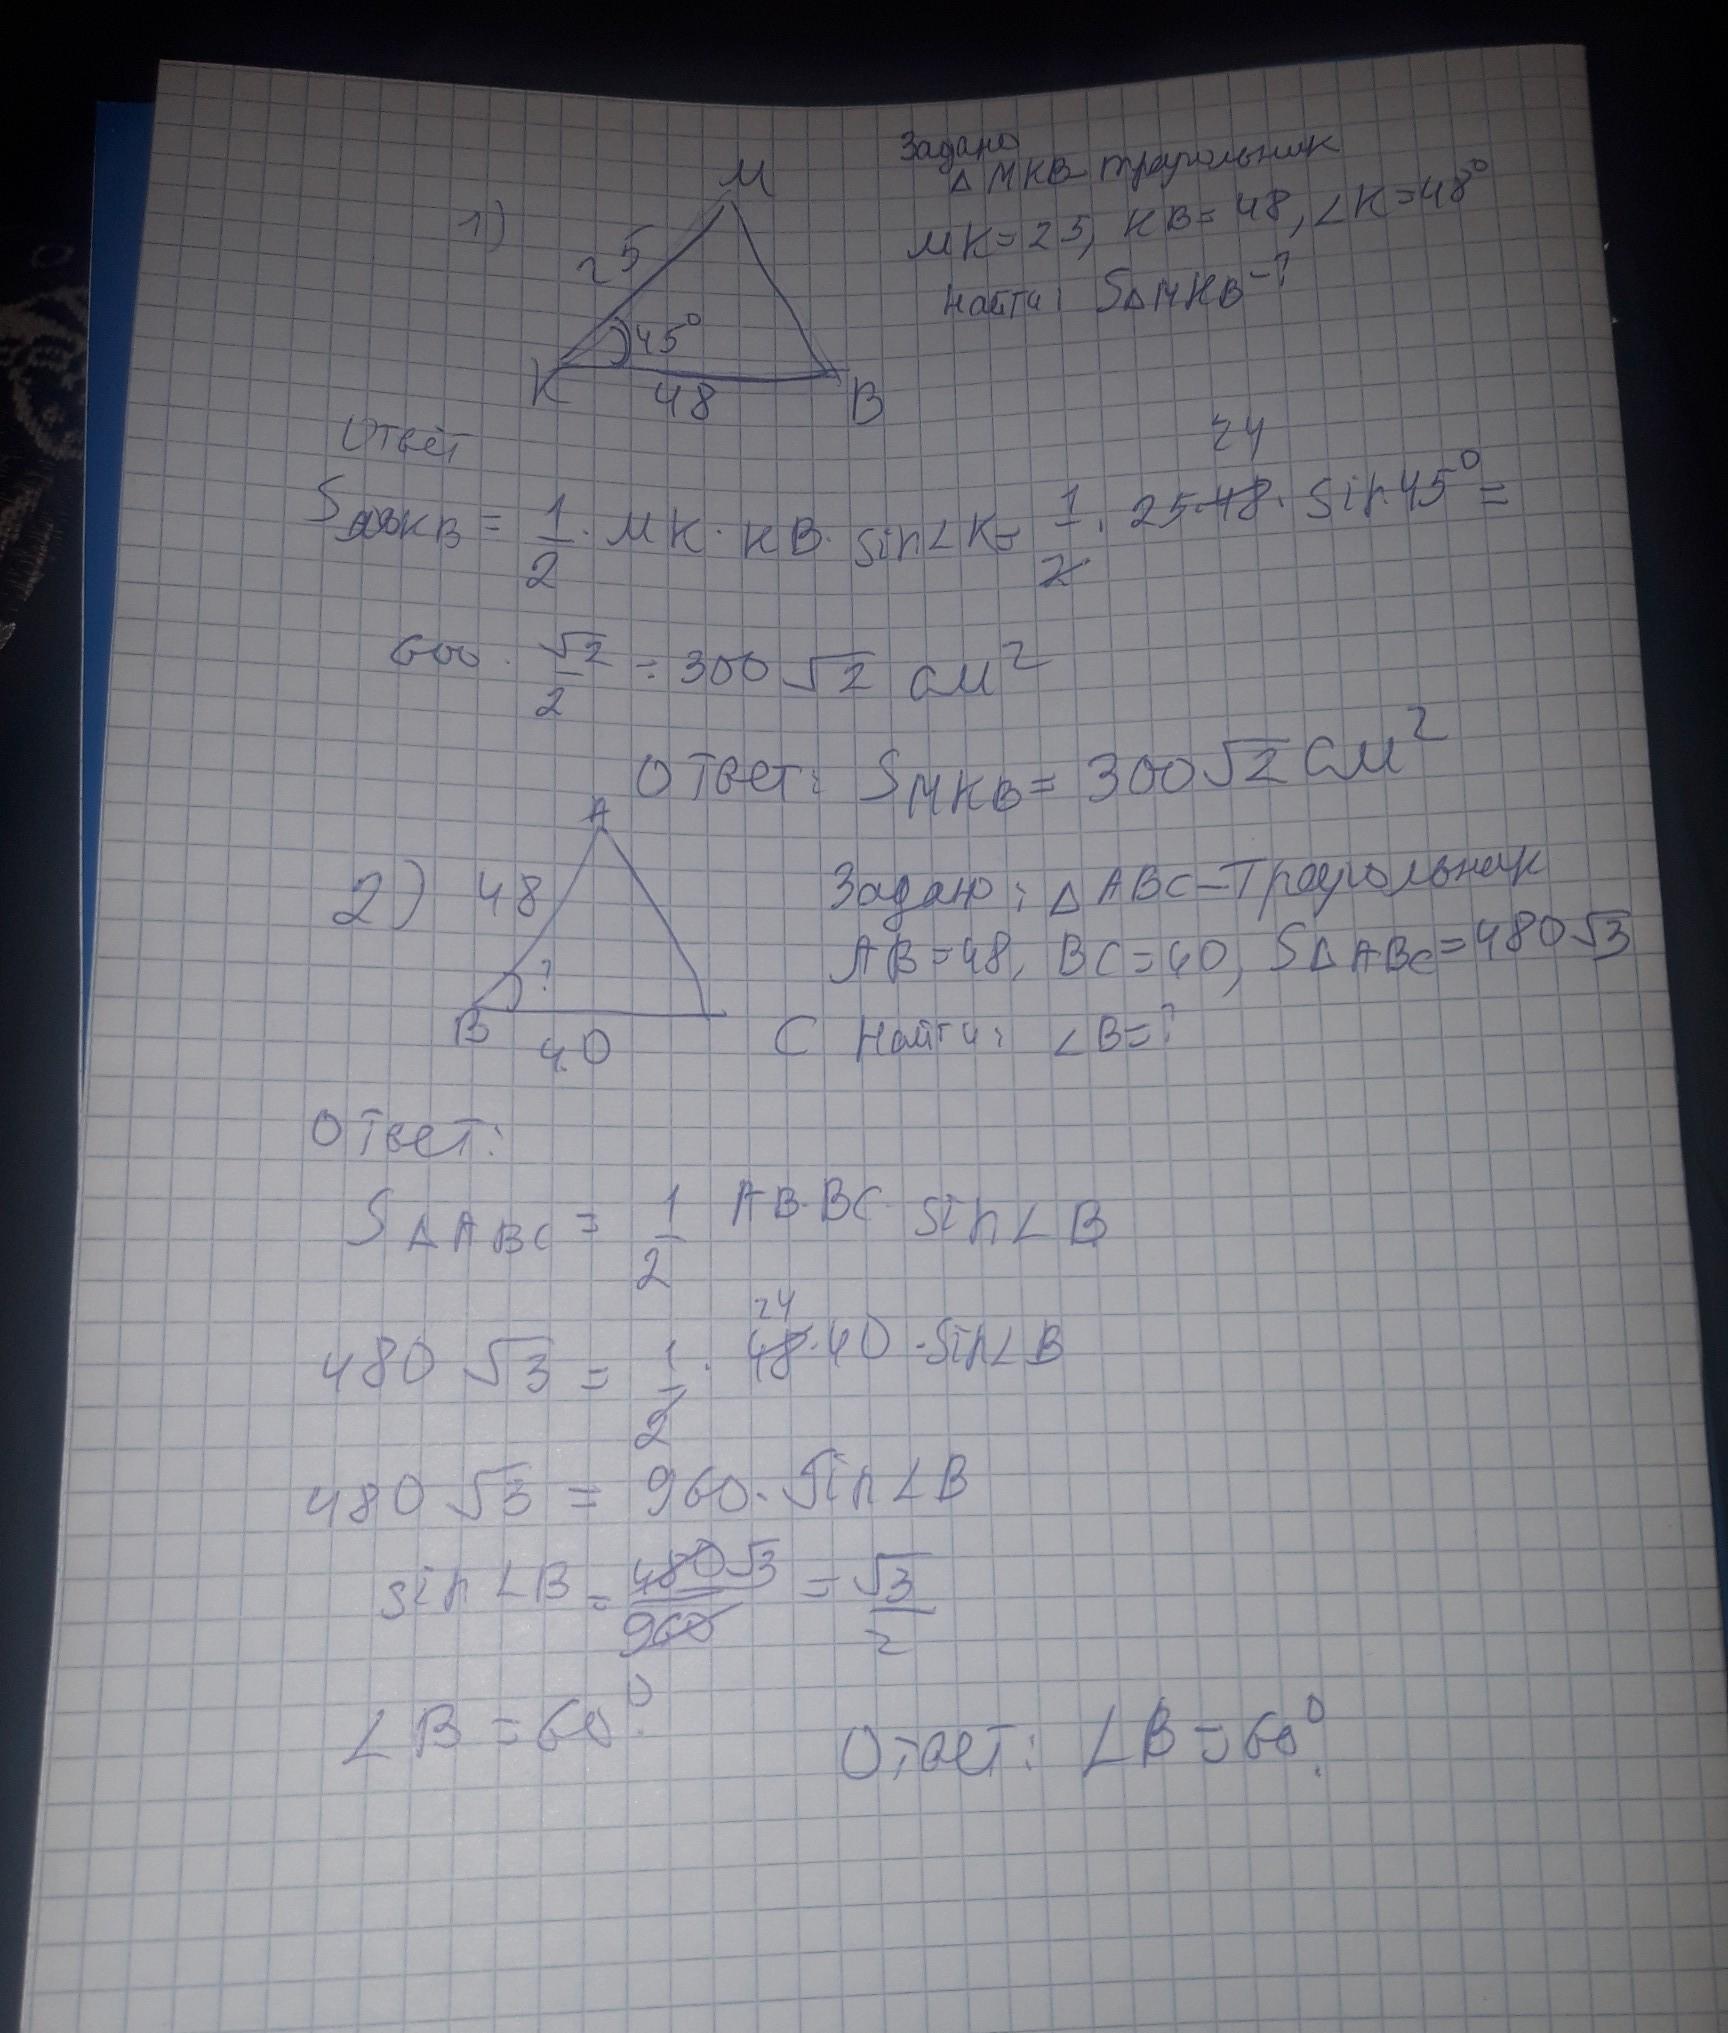 Задано
△MKB треугольник
MK=25, KB=48, ∠K=48°
Найти: S△MKB-?
1)
M
25
45°
K
48
B
Ответ
24
SMKB = 1/2 · MK · KB · sin∠K = 1/2 · 25·48 · sin 45° =
600 · √2/2 = 300√2 см²
Ответ: SMKB = 300√2 см²
2)
A
48
?
B
40
C
Задано: △ABC – Треугольник
AB=48, BC=40, S△ABC=480√3
Найти: ∠B=?
Ответ:
S△ABC = 1/2 AB·BC· sin∠B
24
480√3 = 1/2 · 48·40 · sin∠B
480√3 = 960 · sin∠B
sin∠B = 480√3/960 = √3/2
∠B=60°.
Ответ: ∠B=60°.